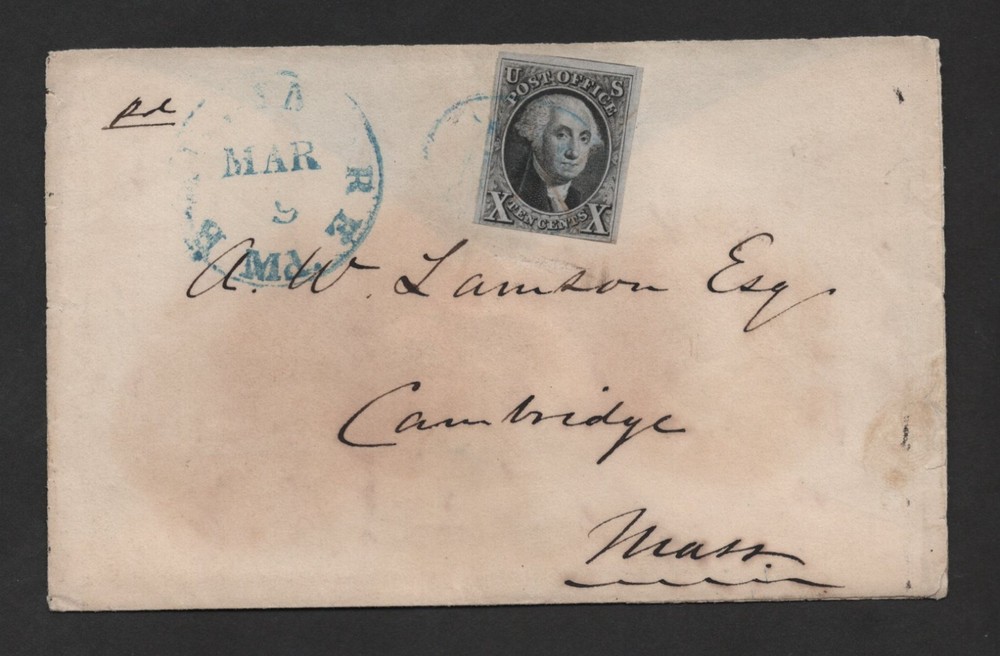 pd
MAR
5
Md.
U S
POST OFFICE
X TEN CENTS X
A. W. Lamson Esq
Cambridge
Mass